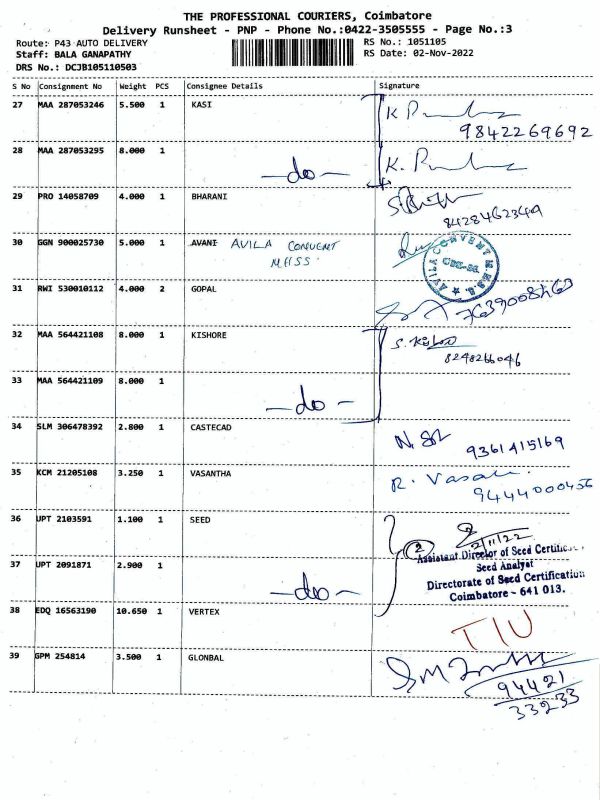 THE PROFESSIONAL COURIERS, Coimbatore
Delivery Runsheet - PNP - Phone No.:0422-3505555 - Page No.:3
Route: P43 AUTO DELIVERY RS No.: 1051105
Staff: BALA GANAPATHY RS Date: 02-Nov-2022
DRS No.: DCJB105110503
S No Consignment No Weight PCS Consignee Details Signature
27 MAA 287053246 5.500 1 KASI
9842269692
28 MAA 287053295 8.000 1
-do-
29 PRO 14058709 4.000 1 BHARANI
8428462349
30 GGN 900025730 5.000 1 AVANI AVILA CONVENT
MHSS.
AVILA CONVENT M.H.S.S.
31 RWI 530010112 4.000 2 GOPAL
7639008463
32 MAA 564421108 8.000 1 KISHORE S. Kishore
8248266046
33 MAA 564421109 8.000 1
-do-
34 SLM 306478392 2.800 1 CASTECAD
9361415169
35 KCM 21205108 3.250 1 VASANTHA R. Vasan
9444000456
36 UPT 2103591 1.100 1 SEED
2
2/11/22
Assistant Director of Seed Certific
Seed Analyst
37 UPT 2091871 2.900 1
Directorate of Seed Certification
-do-
Coimbatore - 641 013.
38 EDQ 16563190 10.650 1 VERTEX
TIU
39 GPM 254814 3.500 1 GLONBAL
94421
33233